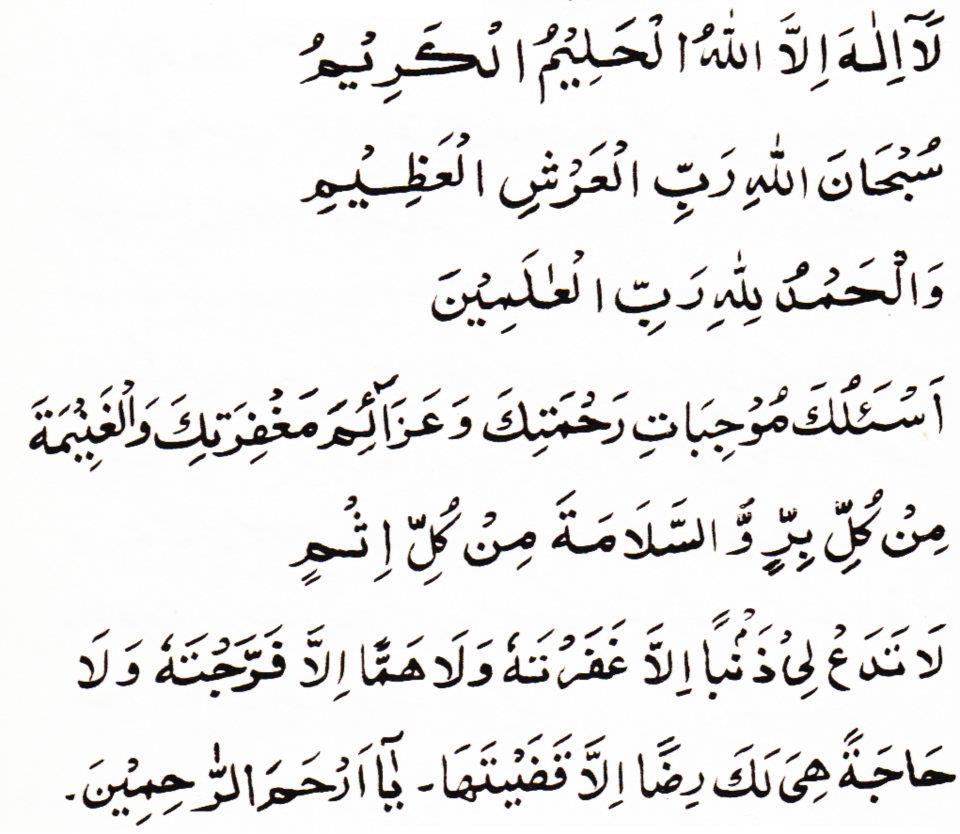 لَآ اِلٰـهَ اِلَّا اللّٰهُ الْحَلِيْمُ الْكَرِيْمُ
سُبْحَانَ اللّٰهِ رَبِّ الْعَرْشِ الْعَظِيْمِ
وَالْحَمْدُ لِلّٰهِ رَبِّ الْعٰلَمِيْنَ
اَسْئَلُكَ مُوْجِبَاتِ رَحْمَتِكَ وَعَزَآئِمَ مَغْفِرَتِكَ وَالْغَنِيْمَةَ
مِنْ كُلِّ بِرٍّ وَّ السَّلَامَةَ مِنْ كُلِّ اِثْمٍ
لَا تَدَعْ لِىْ ذَنْۢبًا اِلَّا غَفَرْتَهٗ وَلَا هَمًّا اِلَّا فَرَّجْتَهٗ وَلَا
حَاجَةً هِىَ لَكَ رِضًا اِلَّا قَضَيْتَهَا۔ يَآ اَرْحَمَ الرّٰحِمِيْنَ۔